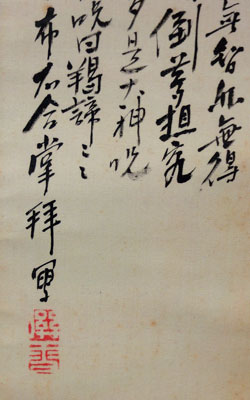 無智亦無得
倒夢想究
是大神咒
咒曰羯諦〻
布石合掌拜